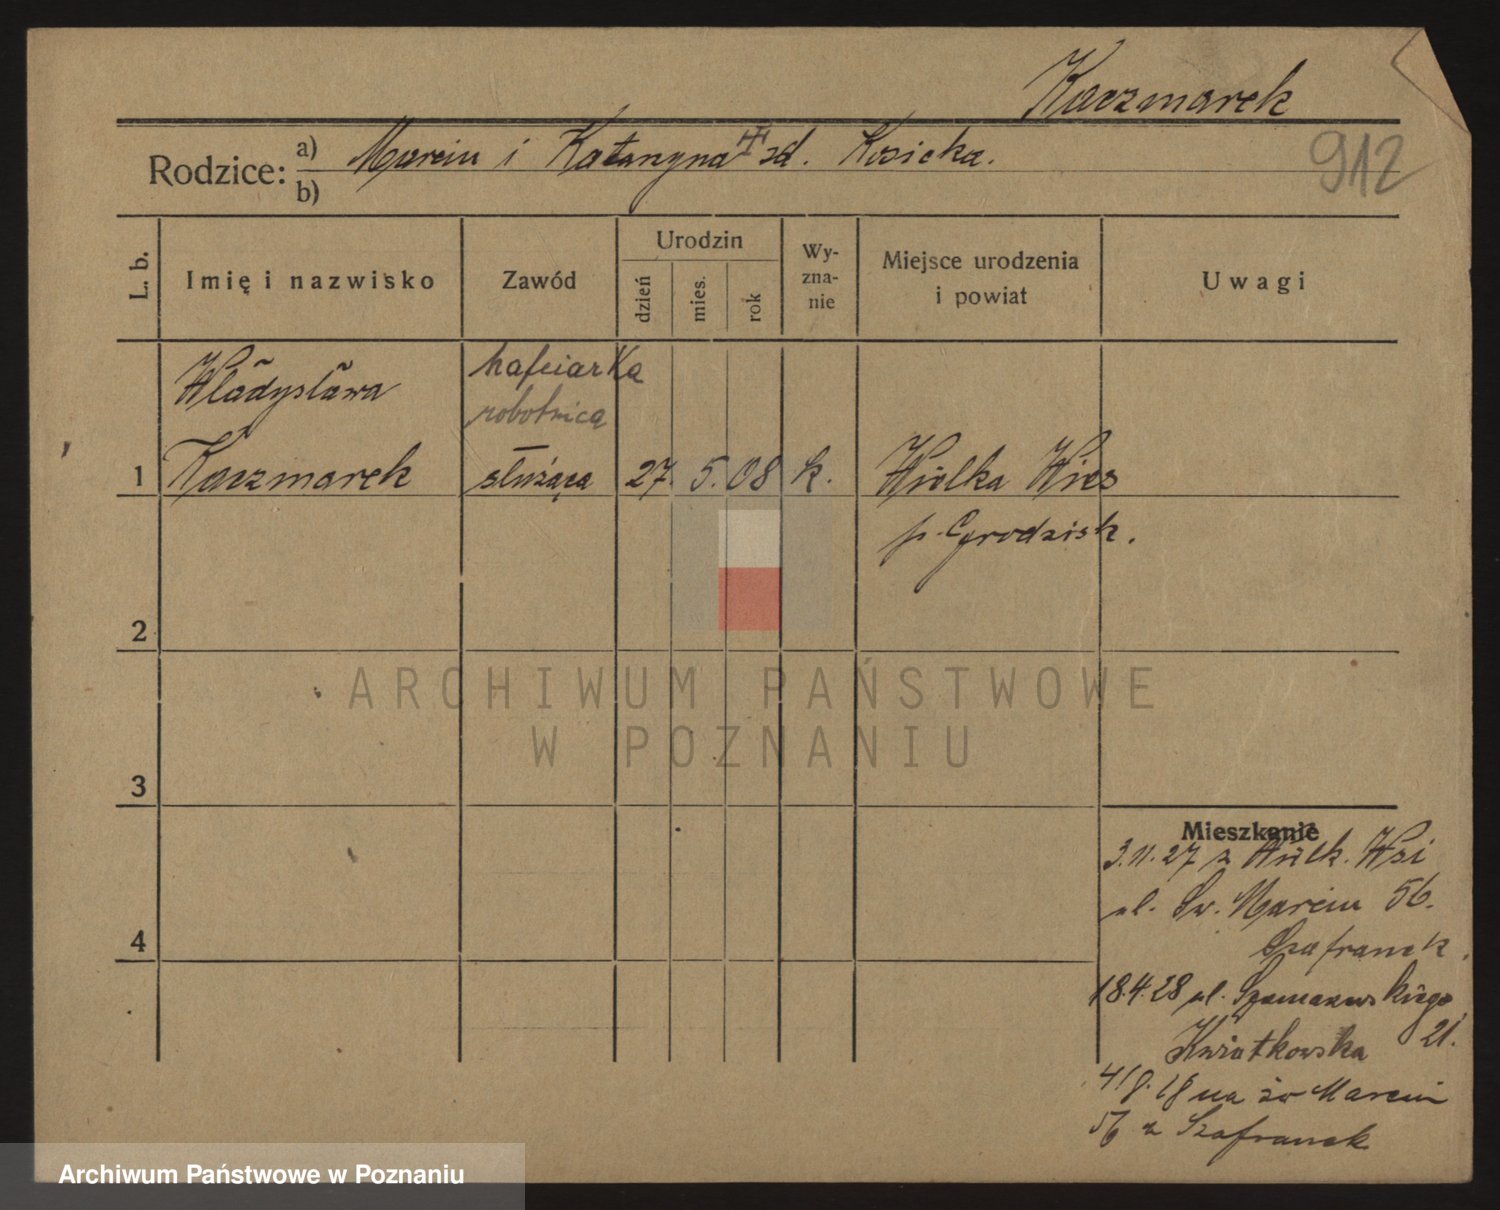 Kaczmarek
912
Rodzice: a) Marcin i Katarzyna zd. Kosicka.
b)
L. b.
Imię i nazwisko
Zawód
Urodzin
dzień
mies.
rok
Wy-
zna-
nie
Miejsce urodzenia
i powiat
Uwagi
Władysława
hafciarka
robotnica
1 Kaczmarek służąca 27. 5. 08 k. Wielka Wieś
p. Grodzisk.
2
3
4
ARCHIWUM PAŃSTWOWE
W POZNANIU
Mieszkanie
3.11.27 z Wielk. Wsi
ul. Św. Marcin 56.
Szafranek.
18.4.28 ul. Szamarzewskiego
21.
Kwiatkowska
na św Marcin
56 z Szafranek
Archiwum Państwowe w Poznaniu